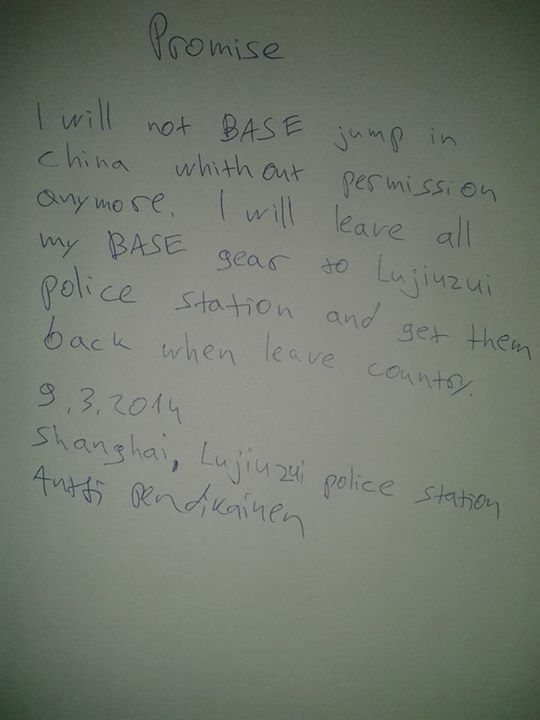 Promise
I will not BASE jump in
china whithout permission
anymore. I will leave all
my BASE gear to Lujiuzui
police station and get them
back when leave country.
9.3.2014
Shanghai, Lujiuzui police station
Antti Pendikainen